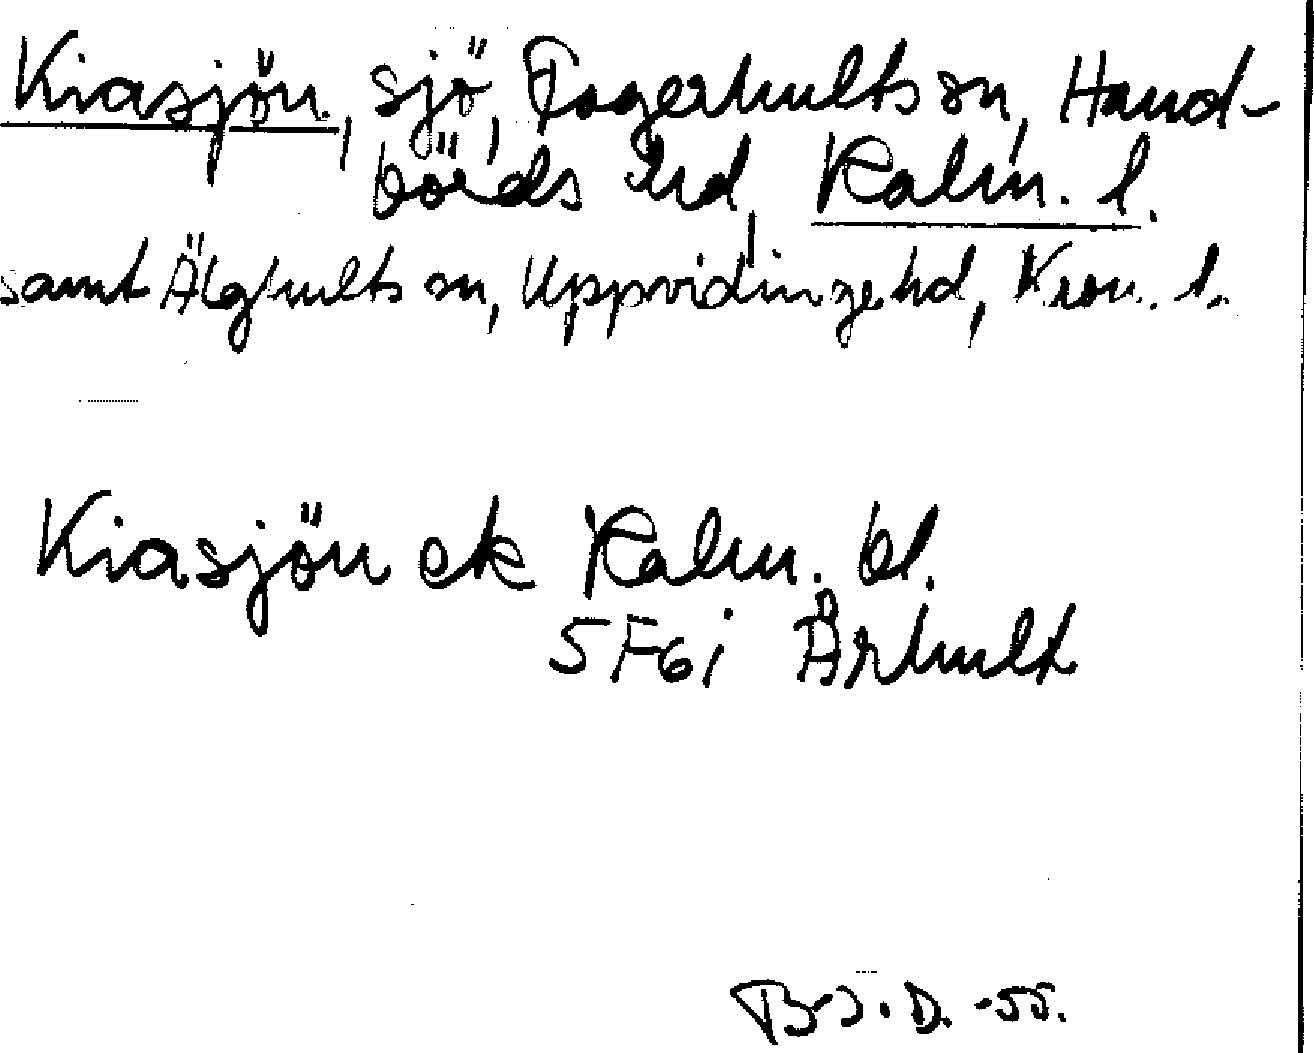 Kiasjön, sjö, Fagerhults sn, Hand-
börds hd, Kalm. l.
samt Älghults sn, Uppvidinge hd, Kron. l.
Kiasjön ek Kalm. bl.
5F6i Århult
B-J. D. -55.